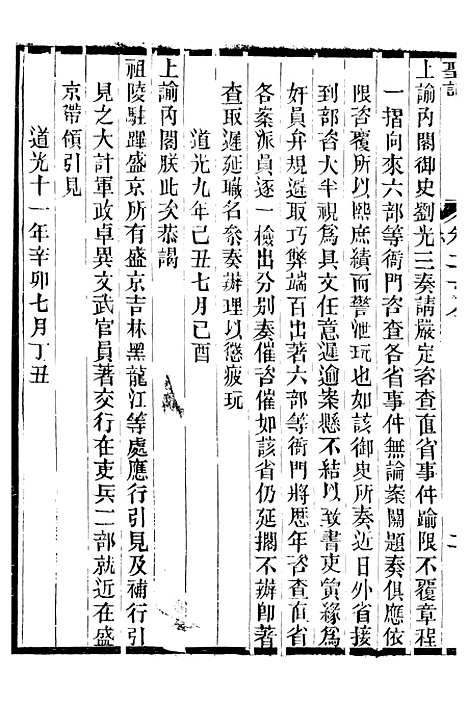 聖訓
上諭內閣御史劉光三奏請嚴定咨查直省事件踰限不覆章程
一摺向來六部等衙門咨查各省事件無論案關題奏俱應依
限咨覆所以熙庶績而警泄玩也如該御史所奏近日外省接
到部咨大半視爲具文任意遲逾案懸不結以致書吏夤緣爲
奸員弁規避取巧弊端百出著六部等衙門將歷年咨查直省
各案派員逐一檢出分別奏催咨催如該省仍延擱不辦卽著
查取遲延職名叅奏辦理以懲疲玩
道光九年己丑七月己酉
上諭內閣朕此次恭謁
祖陵駐蹕盛京所有盛京吉林黑龍江等處應行引見及補行引
見之大計軍政卓異文武官員著交行在吏兵二部就近在盛
京帶領引見
道光十一年辛卯七月丁丑